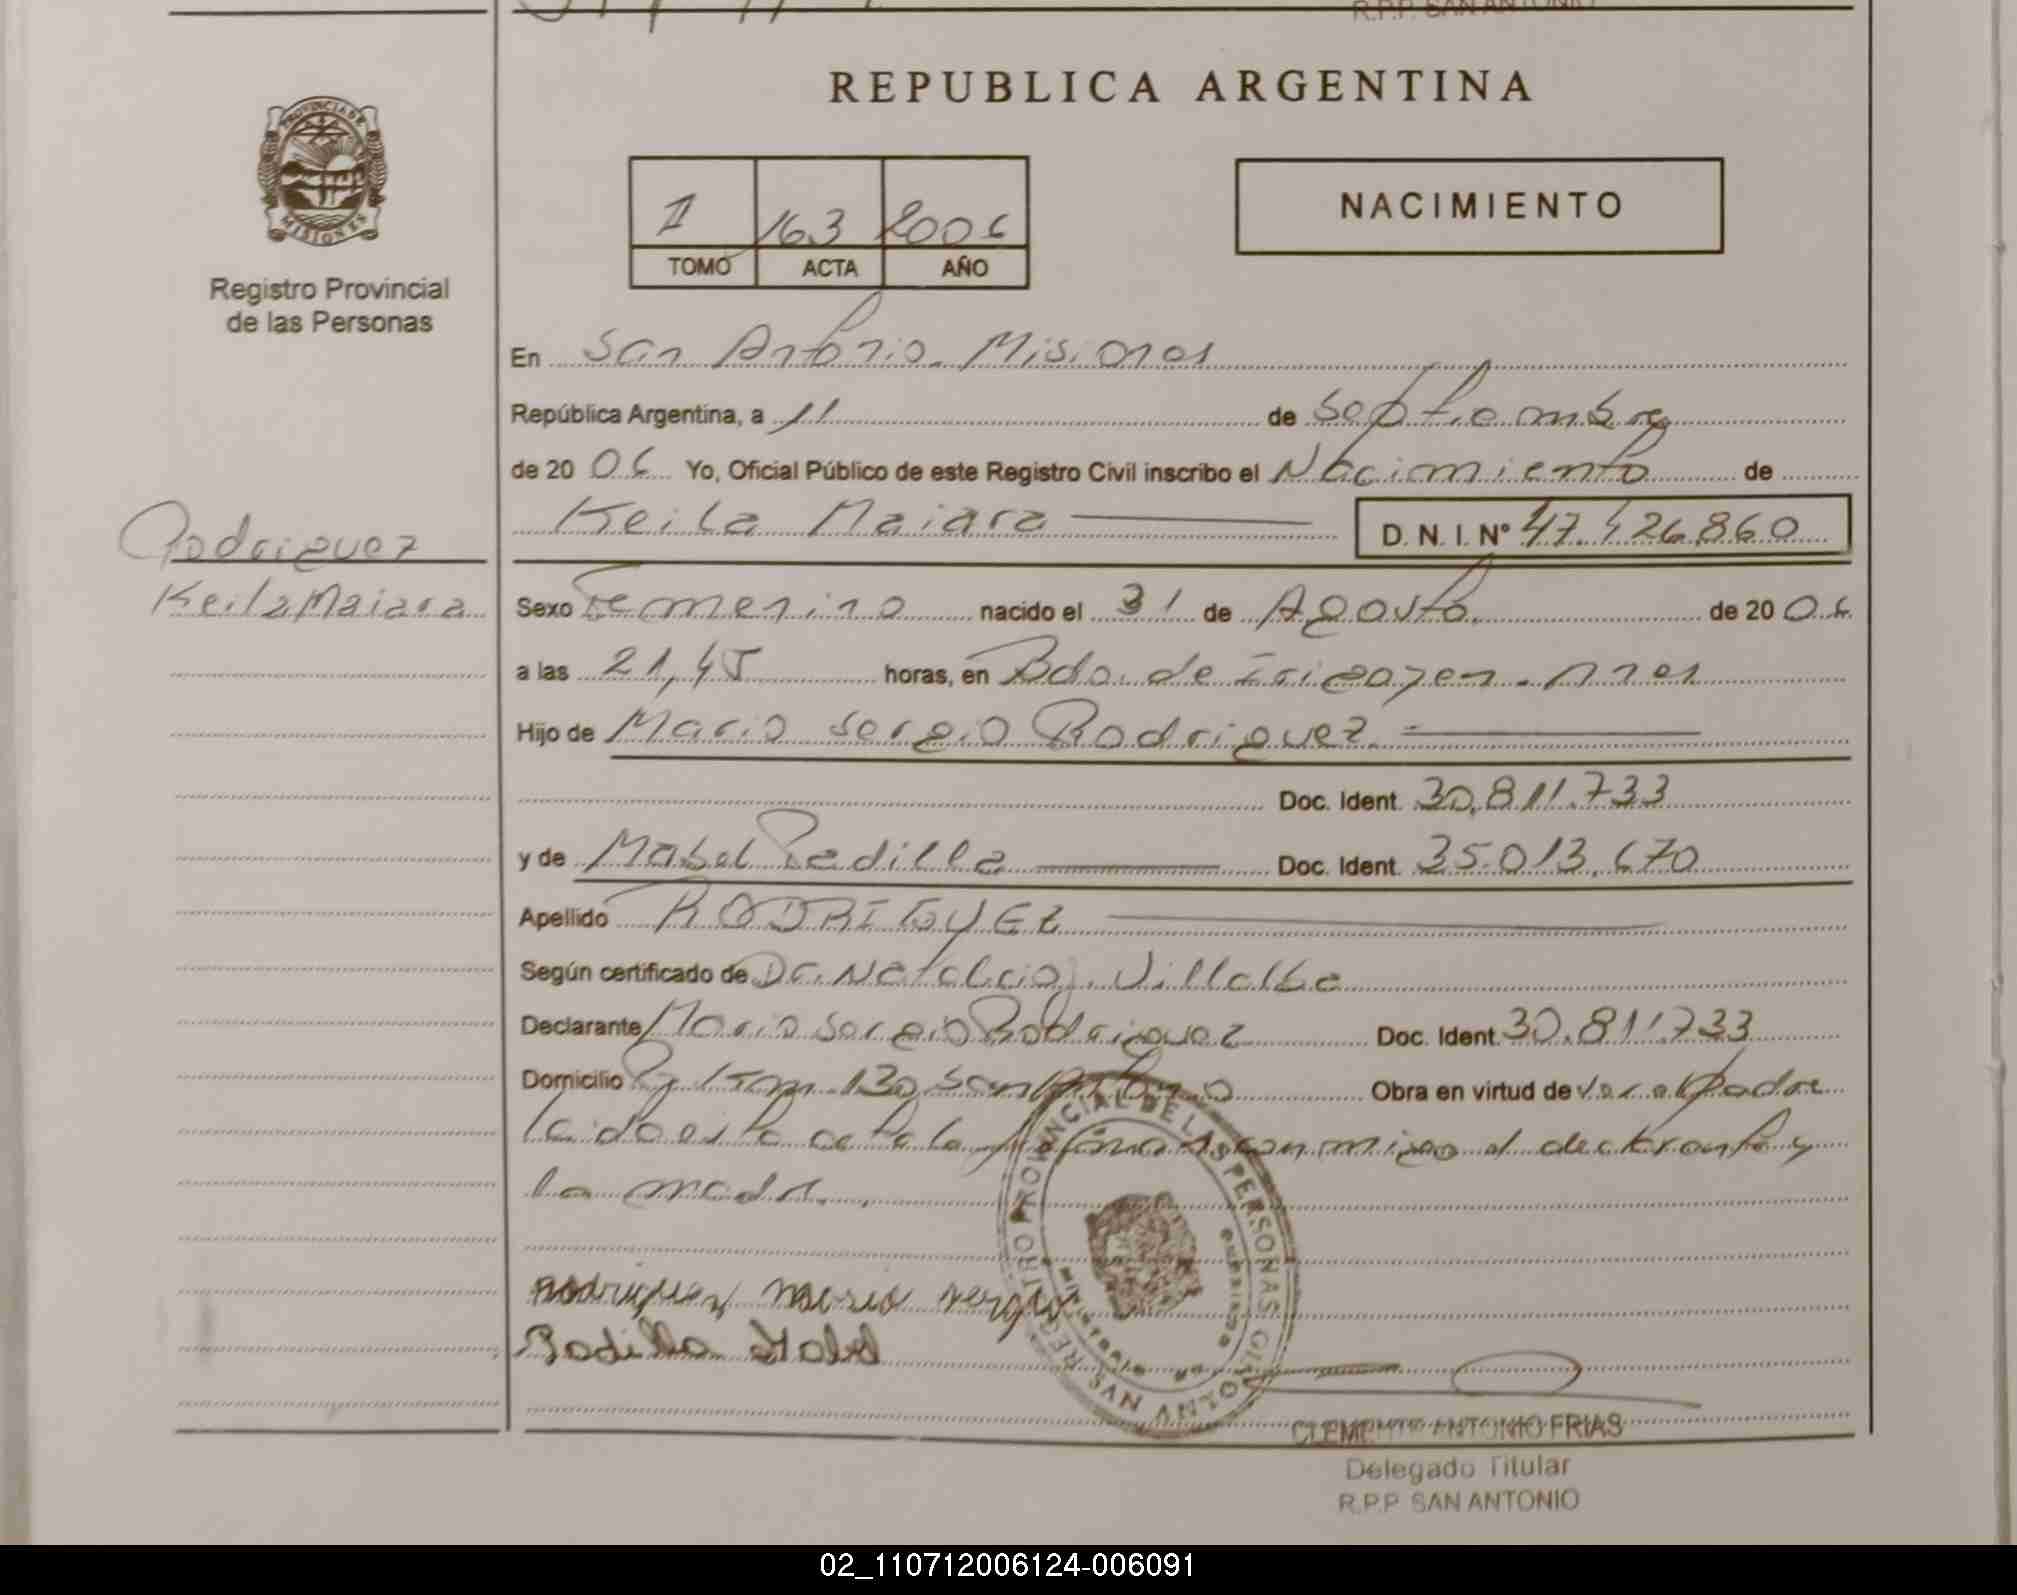 R.P.P. SAN ANTONIO
PROVINCIA DE
MISIONES
Registro Provincial
de las Personas
REPUBLICA ARGENTINA
I 163 2006
TOMO ACTA AÑO
NACIMIENTO
En San Antonio Misiones
República Argentina, a 11 de Septiembre
de 2006 Yo, Oficial Público de este Registro Civil inscribo el Nacimiento de
Keila Maiara D. N. I. Nº 47.426.860
Rodriguez
Keila Maiara
Sexo Femenino nacido el 31 de Agosto de 2006
a las 21,45 horas, en Bdo. de Irigoyen. Mnes
Hijo de Mario Sergio Rodriguez
Doc. Ident. 30.811.733
y de Mabel Padilla Doc. Ident. 35.013.670
Apellido RODRIGUEZ
Según certificado de Dr. Natalicio J. Villalba
Declarante Mario Sergio Rodriguez Doc. Ident. 30.811.733
Domicilio Km 130 San Antonio Obra en virtud de ser el Padre
Leida esta acta la firman conmigo el declarante y
la madre.
Rodriguez Mario Sergio
Padilla Mabel
REGISTRO PROVINCIAL DE LAS PERSONAS
SAN ANTONIO
CLEMENTE ANTONIO FRIAS
Delegado Titular
R.P.P. SAN ANTONIO
02_110712006124-006091